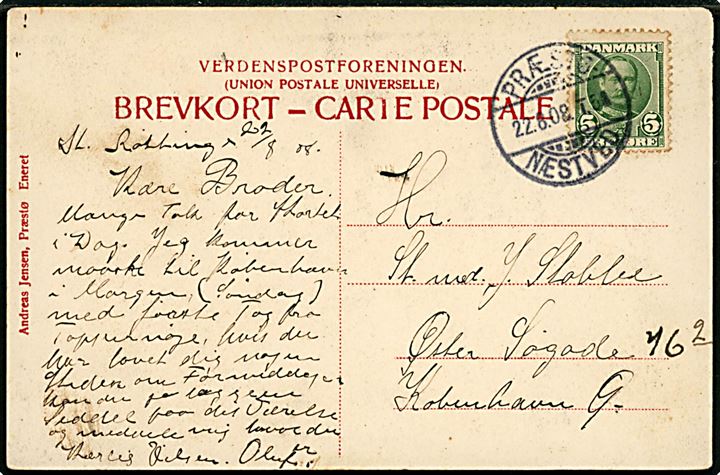 VERDENSPOSTFORENINGEN.
(UNION POSTALE UNIVERSELLE)
BREVKORT – CARTE POSTALE
DANMARK
5 5
ØRE
PRÆSTØ
22.8.08
NÆSTVED
Andreas Jensen, Præstø Eneret
St. Røttinge 22/8 08.
Kære Broder.
Mange Tak for Kortet
i Dag. Jeg kommer
maaske til København
i Morgen, (Søndag)
med første Tog fra
Tappernøje, hvis du
har lovet dig nogen
Steden om Formiddagen
kan du jo lægge en
Seddel paa dit Værelse
og meddele mig hvor du er
Kærlig Hilsen. Oluf.
Hr.
St. med. J. Stobbe
Øster Søgade 76 2
København Ø.